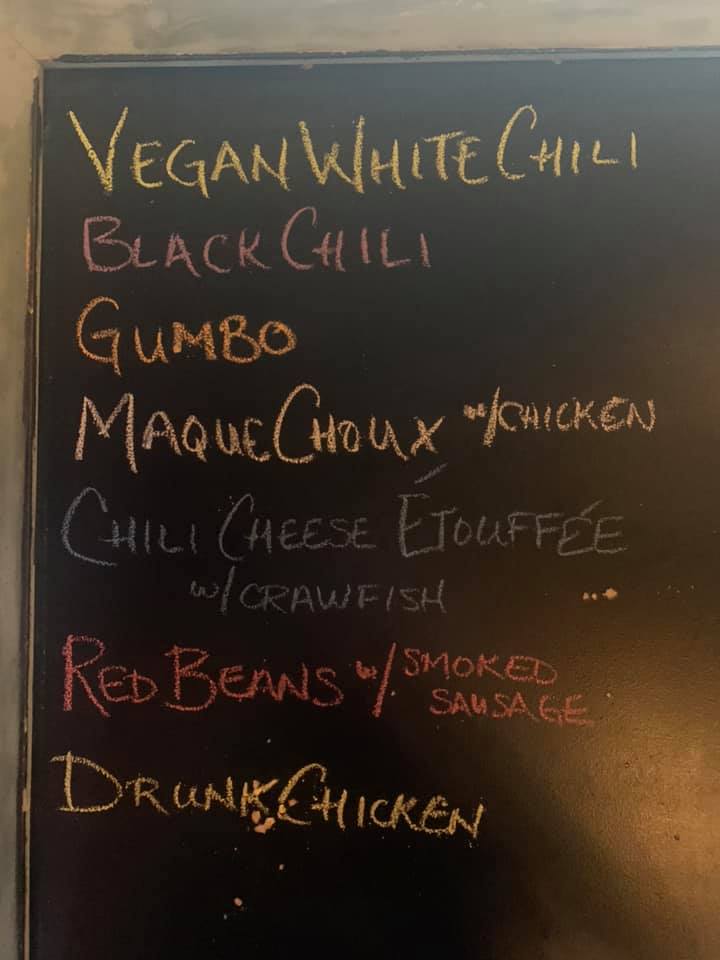 VEGAN WHITE CHILI
BLACK CHILI
GUMBO
MAQUE CHOUX w/CHICKEN
CHILI CHEESE ÉTOUFFÉE
w/CRAWFISH
RED BEANS w/ SMOKED
SAUSAGE
DRUNK CHICKEN